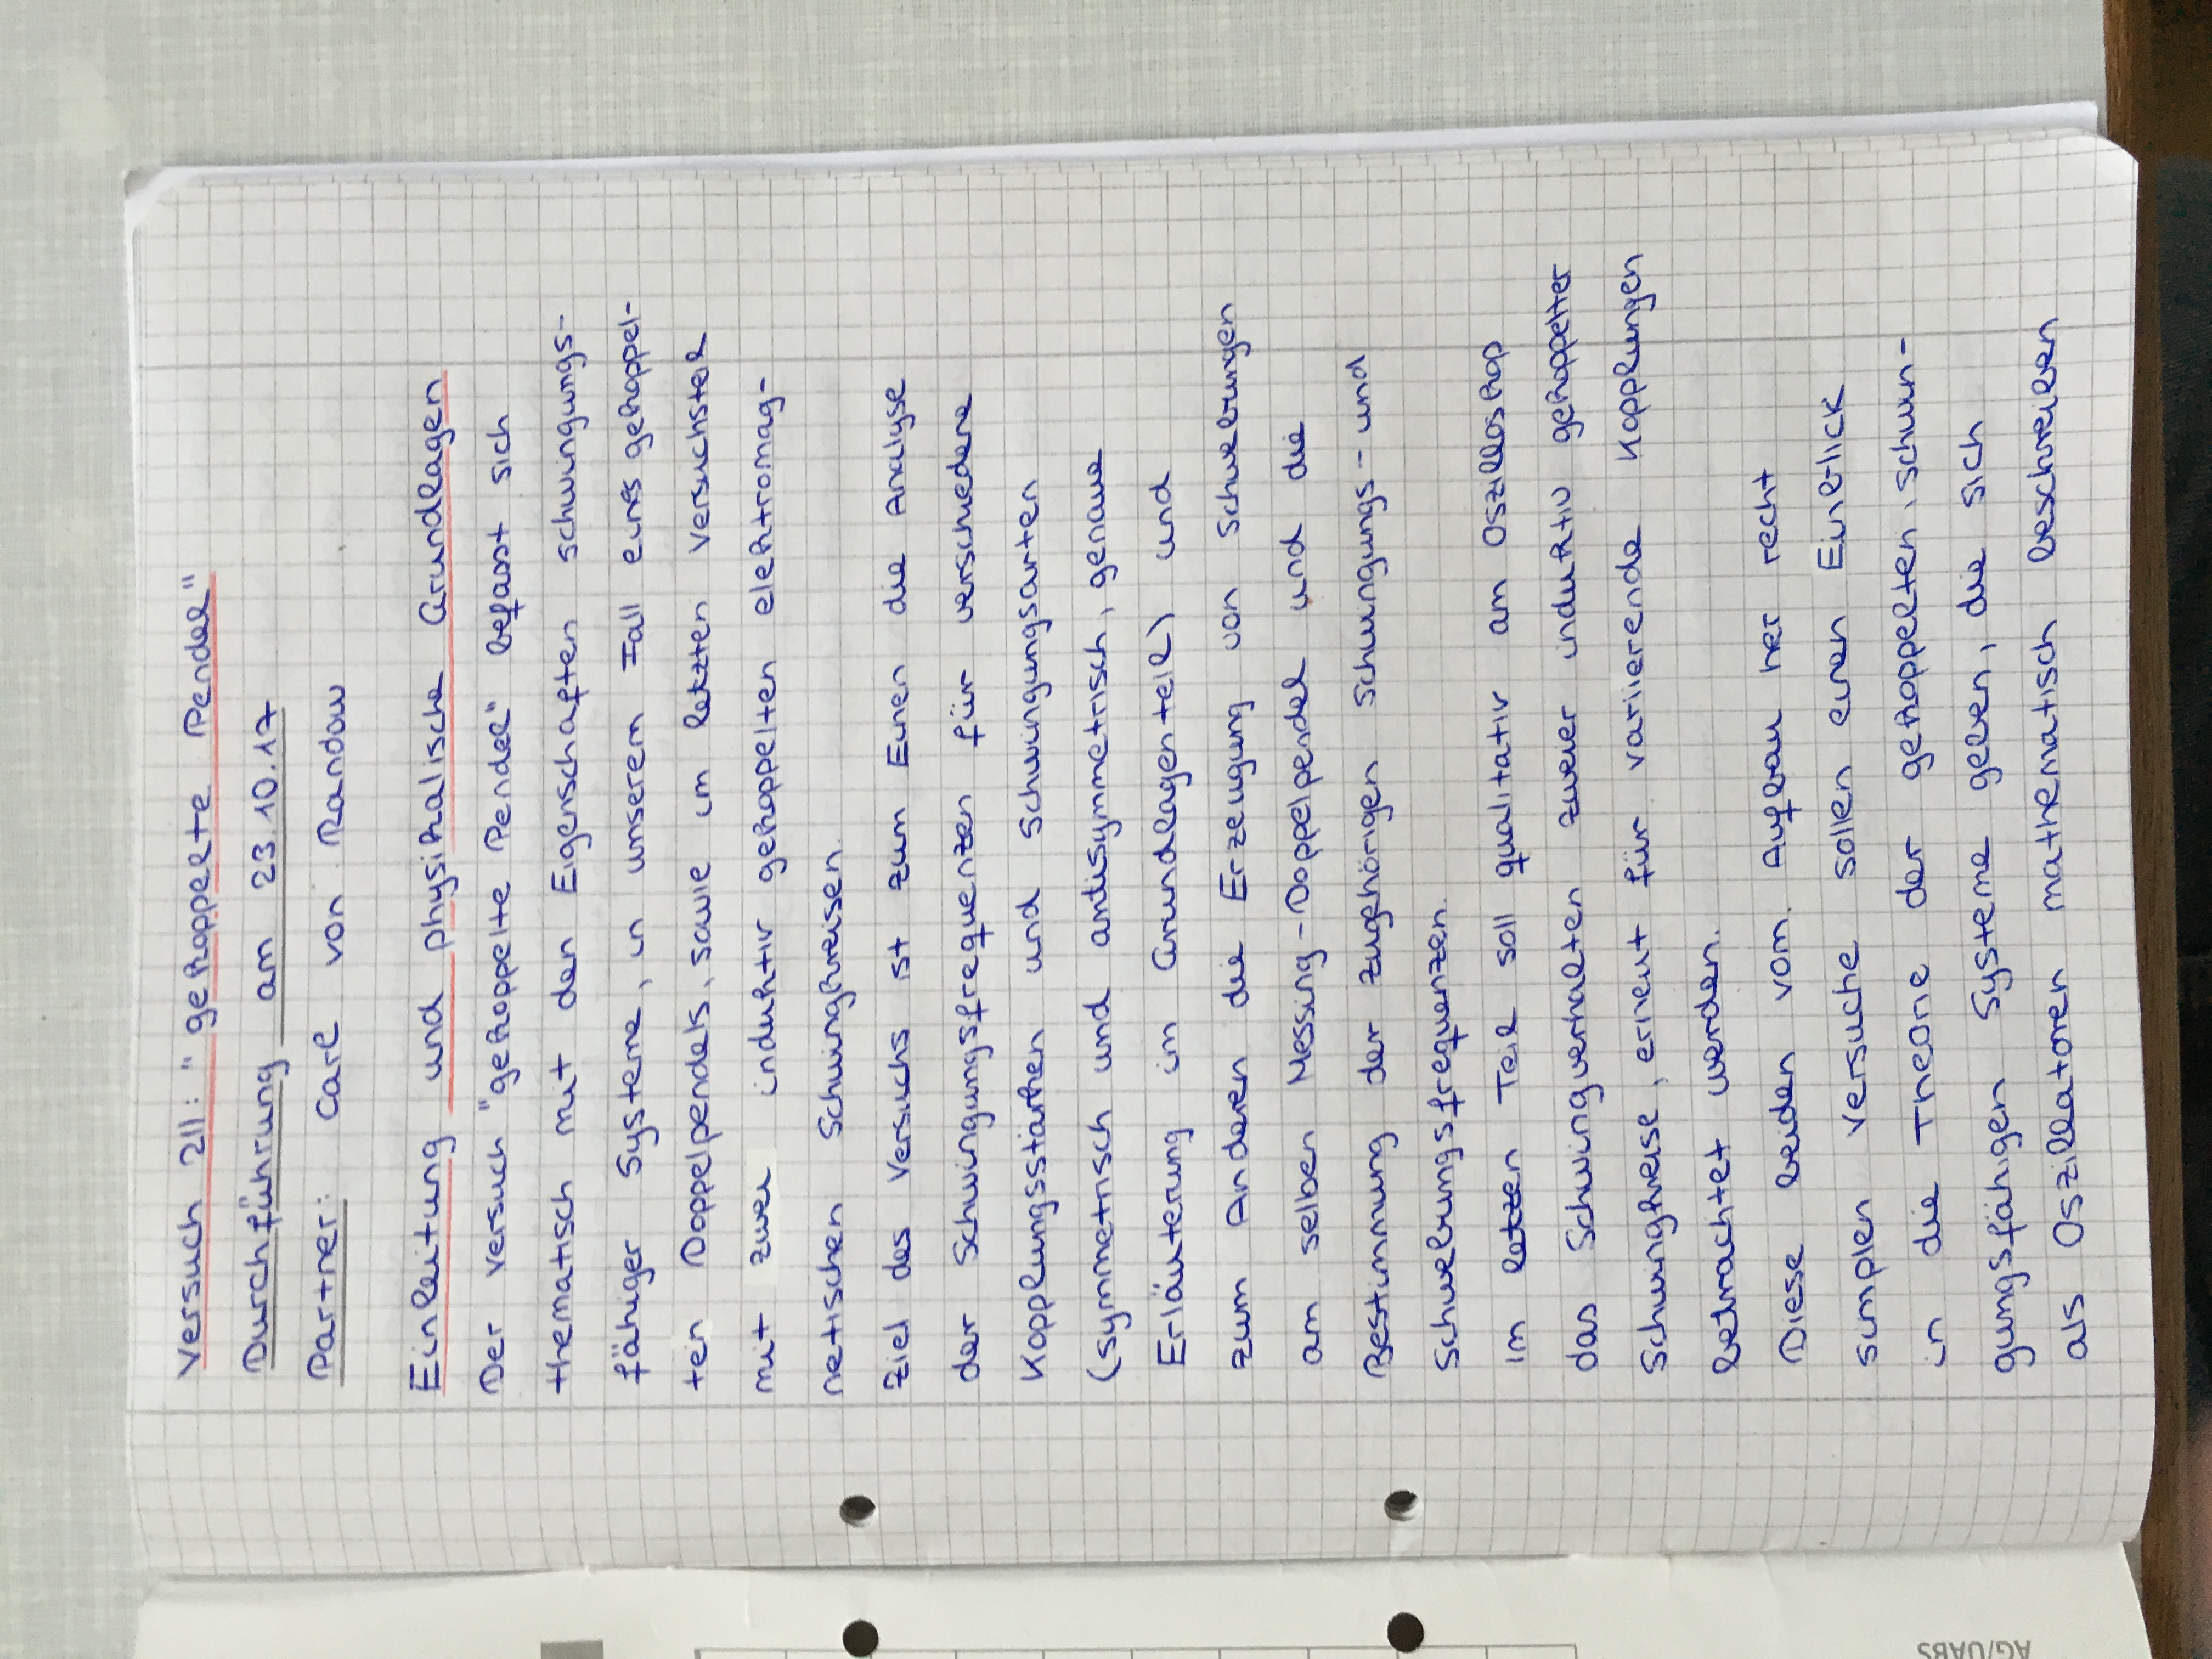 Versuch 211: "gekoppelte Pendel"
Durchführung am 23.10.17
Partner: Carl von Randow
Einleitung und physikalische Grundlagen
Der Versuch "gekoppelte Pendel" befasst sich
thematisch mit den Eigenschaften schwingungs-
fähiger Systeme, in unserem Fall eines gekoppel-
ten Doppelpendels, sowie im letzten Versuchsteil
mit zwei induktiv gekoppelten elektromag-
netischen Schwingkreisen.
Ziel des Versuchs ist zum Einen die Analyse
der Schwingungsfrequenzen für verschiedene
Kopplungsstärken und Schwingungsarten
(symmetrisch und antisymmetrisch, genaue
Erläuterung im Grundlagenteil) und
zum Anderen die Erzeugung von Schwebungen
am selben Messing-Doppelpendel und die
Bestimmung der zugehörigen Schwingungs- und
Schwebungsfrequenzen.
Im letzen Teil soll qualitativ am Oszilloskop
das Schwingverhalten zweier induktiv gekoppelter
Schwingkreise, erneut für variierende Kopplungen
betrachtet werden.
Diese beiden vom Aufbau her recht
simplen Versuche sollen einen Einblick
in die Theorie der gekoppelten, schwin-
gungsfähigen Systeme geben, die sich
als Oszillatoren mathematisch beschreiben
AG/UABS